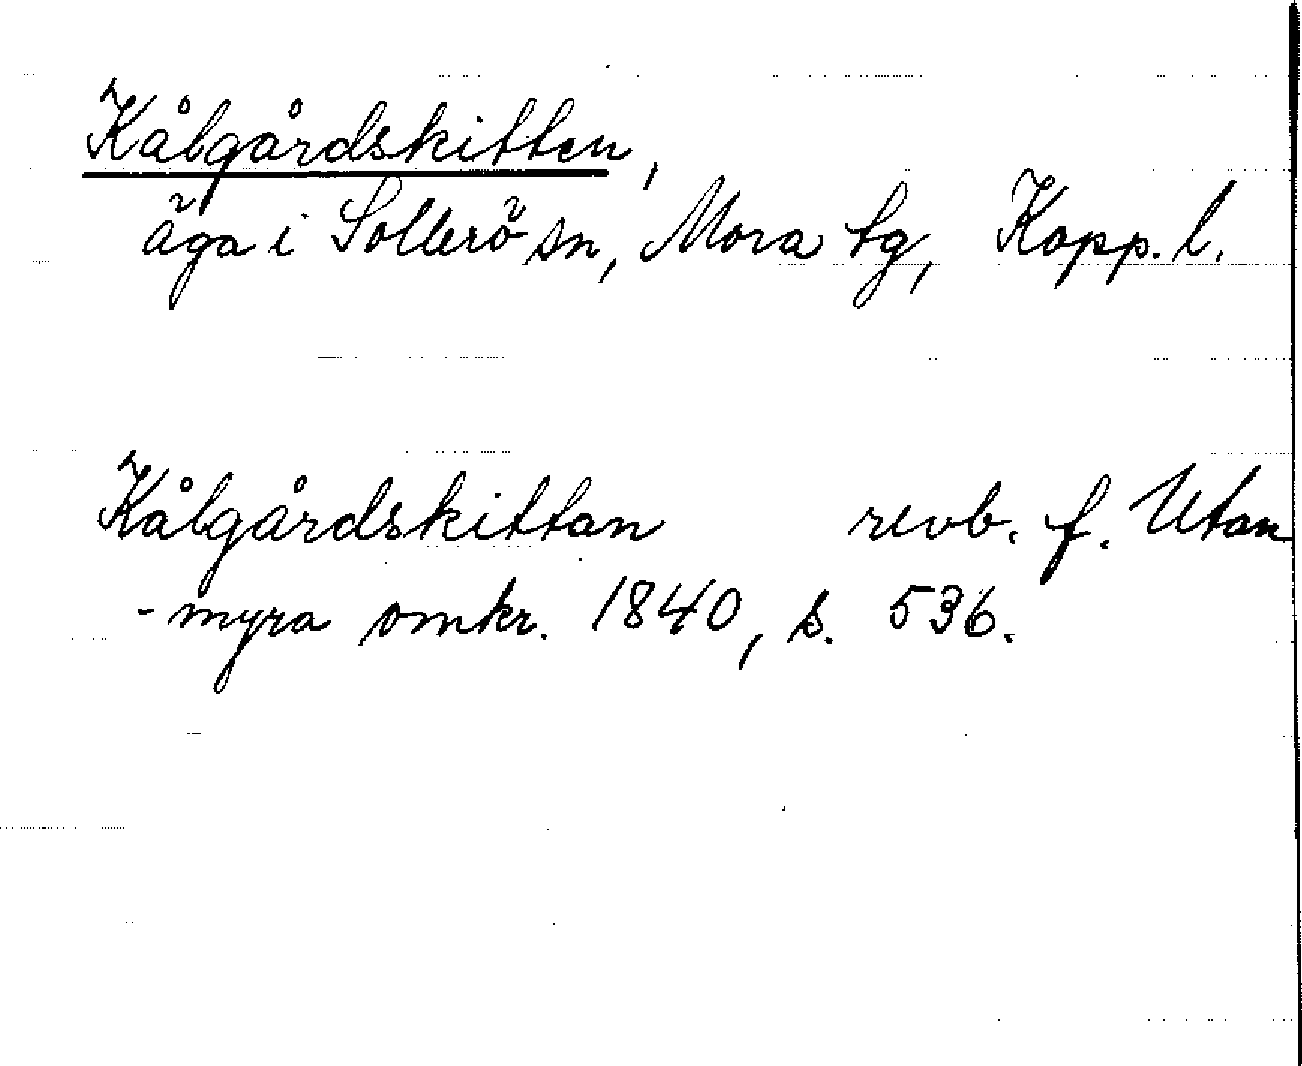 Kålgårdskitten,
äga i Sollerö sn, Mora tg, Kopp. l.
Kålgårdskittan revb. f. Utan
-myra omkr. 1840, s. 536.